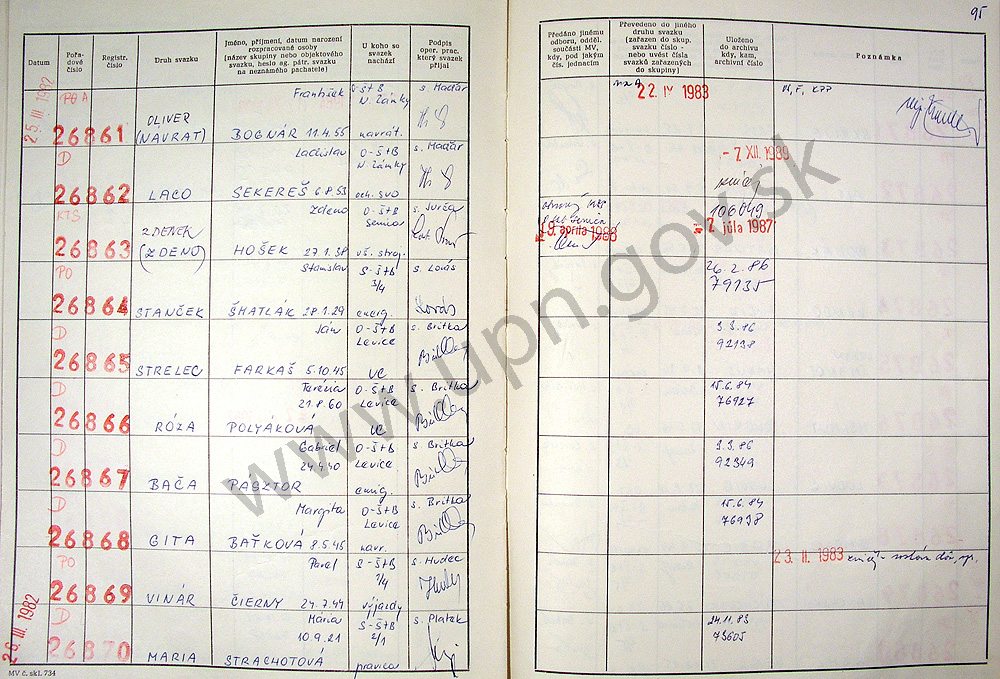 95
Datum
Pořadové číslo
Registr. číslo
Druh svazku
Jméno, příjmení, datum narození rozpracované osoby (název skupiny nebo objektového svazku, heslo ag. pátr. svazku na neznámého pachatele)
U koho so svazek nachází
Podpis oper. prac. který svazek přijal
Předáno jinému odboru, odděl. součásti MV, kdy, pod jakým čís. jednacím
Převedeno do jiného druhu svazku (zařazen do skup. svazku číslo - nebo uvést čísla svazků zařazených do skupiny)
Uloženo do archivu kdy, kam, archivní číslo
Poznámka
25. III. 1982
František O-Š+B s. Maďar
22. IV 1983
26861 OLIVER (NAVRAT) BOGNÁR 11.4.55 N. Zámky navrát.
D Ladislav O-Š+B s. Maďar
- 7 XII. 1989
26862 LACO SEKEREŠ 6.8.53 N. Zámky
KTS Zdeno O-Š+B s. Jurča
106049
26863 ZDENEK (ZDENO) HOŠEK 27.1.38 Senica
apríla 1988
2 júla 1987
PO Stanislav S-Š+B 3/4 s. Lovás
26.2.86
79135
26864 STANČEK ŠMATLÁK 28.1.29 energ.
D Ján O-Š+B Levice s. Britka
3.3.86
92138
26865 STRELEC FARKAŠ 5.10.45 VC
D Terézia O-Š+B s. Britka
15.6.84
21.8.60 Levice
76927
26866 RÓZA POLYÁKOVÁ VC
D Gabriel O-Š+B s. Britka
3.3.86
24.4.40 Levice
92349
26867 BAČA PASZTOR emig.
D Margita O-Š+B Levice s. Britka
15.6.84
76938
26868 GITA BAŤKOVÁ 8.5.45 navr.
PO Pavel S-Š+B 7/4 s. Hudec
23. II. 1983
26869 VINÁR ČIERNY 24.7.49 výjazdy
26. III. 1982
D Mária S-Š+B s. Platek
24.11.83
10.9.21 2/1
73605
26870 MARIA STRACHOTOVÁ pravica
MV č. skl. 734
www.upn.gov.sk